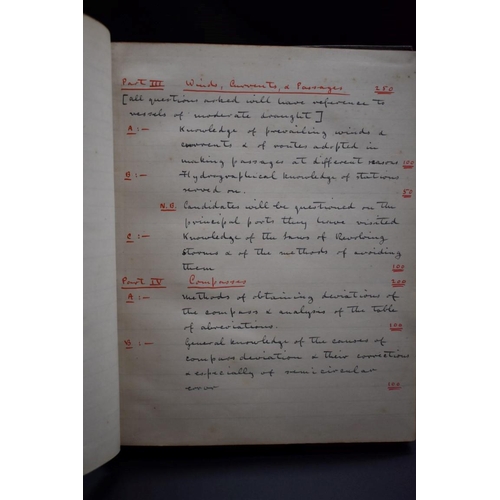 Part III Winds, Currents, & Passages. 250
[all questions asked will have reference to
vessels of moderate draught]
A:— Knowledge of prevailing winds &
currents & of routes adopted in
making passages at different seasons 100
B:— Hydrographical knowledge of stations
served on. 50
N.B. Candidates will be questioned on the
principal ports they have visited
C:— Knowledge of the Laws of Revolving
storms & of the methods of avoiding
them 100
Part IV Compasses 200
A:— Methods of obtaining deviations of
the compass & analysis of the table
of abreviations. 100
B:— General knowledge of the causes of
compass deviation & their corrections
& especially of semicircular
error 100